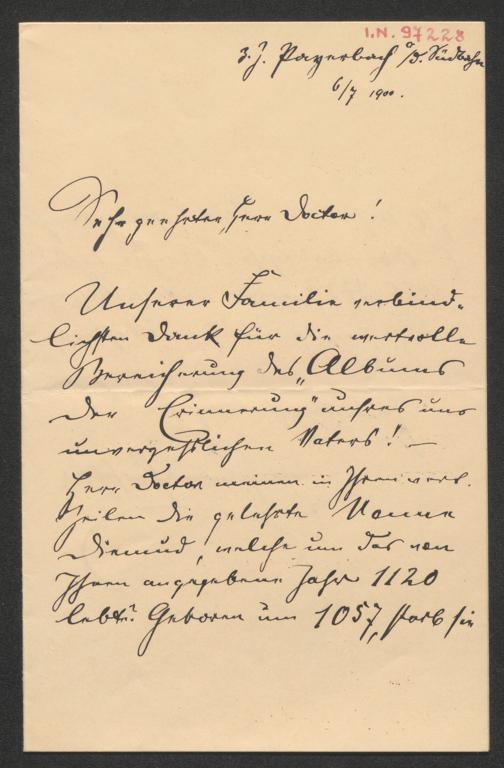 I.N. 97228
z. Z. Payerbach a/d. Südbahn
6/7 1900.
Sehr geehrter Herr Doctor!
Unserer Familie verbind-
lichsten Dank für die wertvolle
Bereicherung des „Albums
der Erinnerung" unsres uns
unvergesslichen Vaters! —
Herr Doctor meinen in Ihren wert.
Zeilen die gelehrte Nonne
Diemud, welche um das von
Ihnen angegebene Jahr 1120
lebte? Geboren um 1057, starb sie